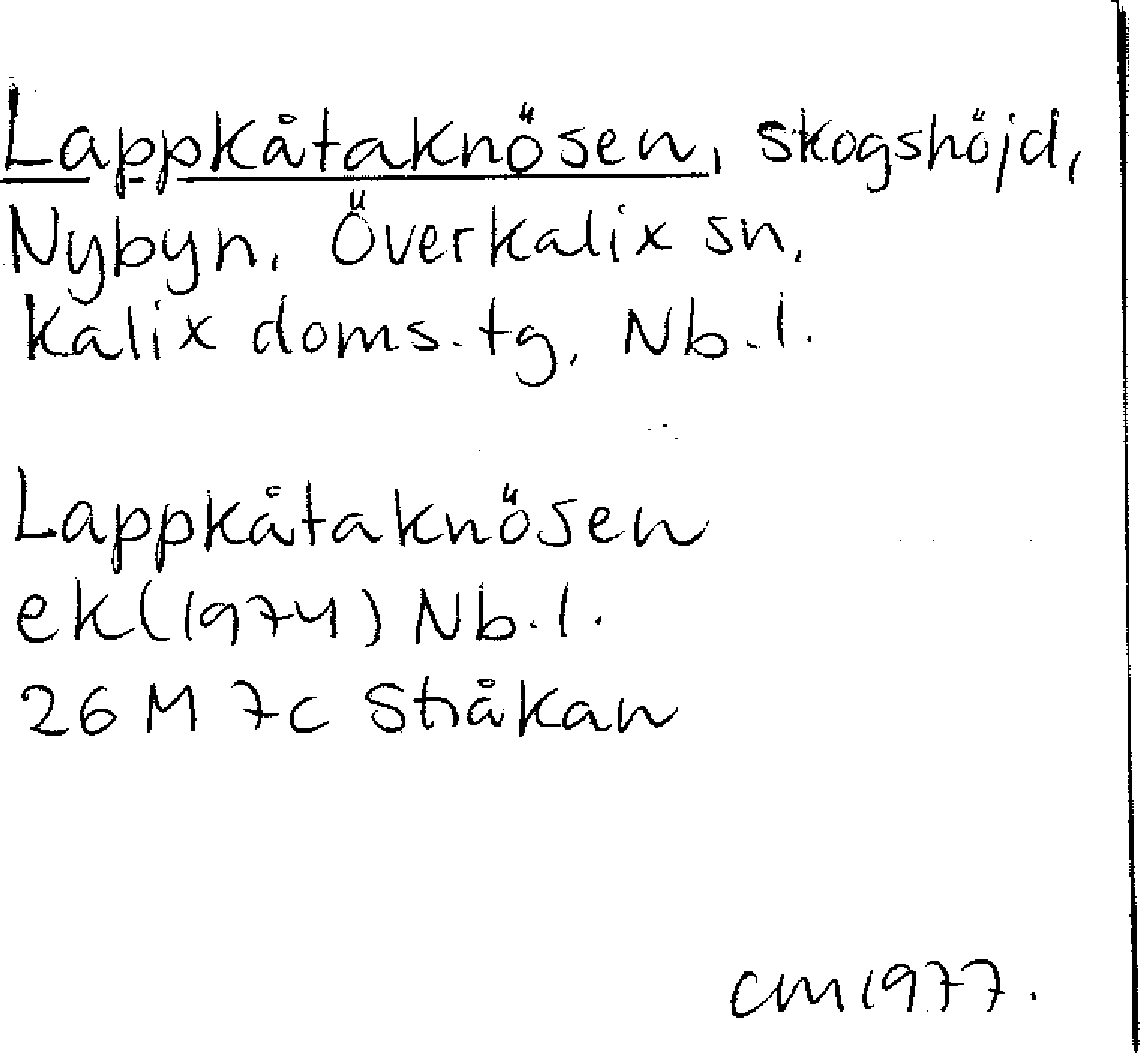 Lappkåtaknösen, skogshöjd,
Nybyn, Överkalix sn,
Kalix doms.tg, Nb.l.
Lappkåtaknösen
ek(1974) Nb.l.
26 M 7c Stråkan
CM 1977.